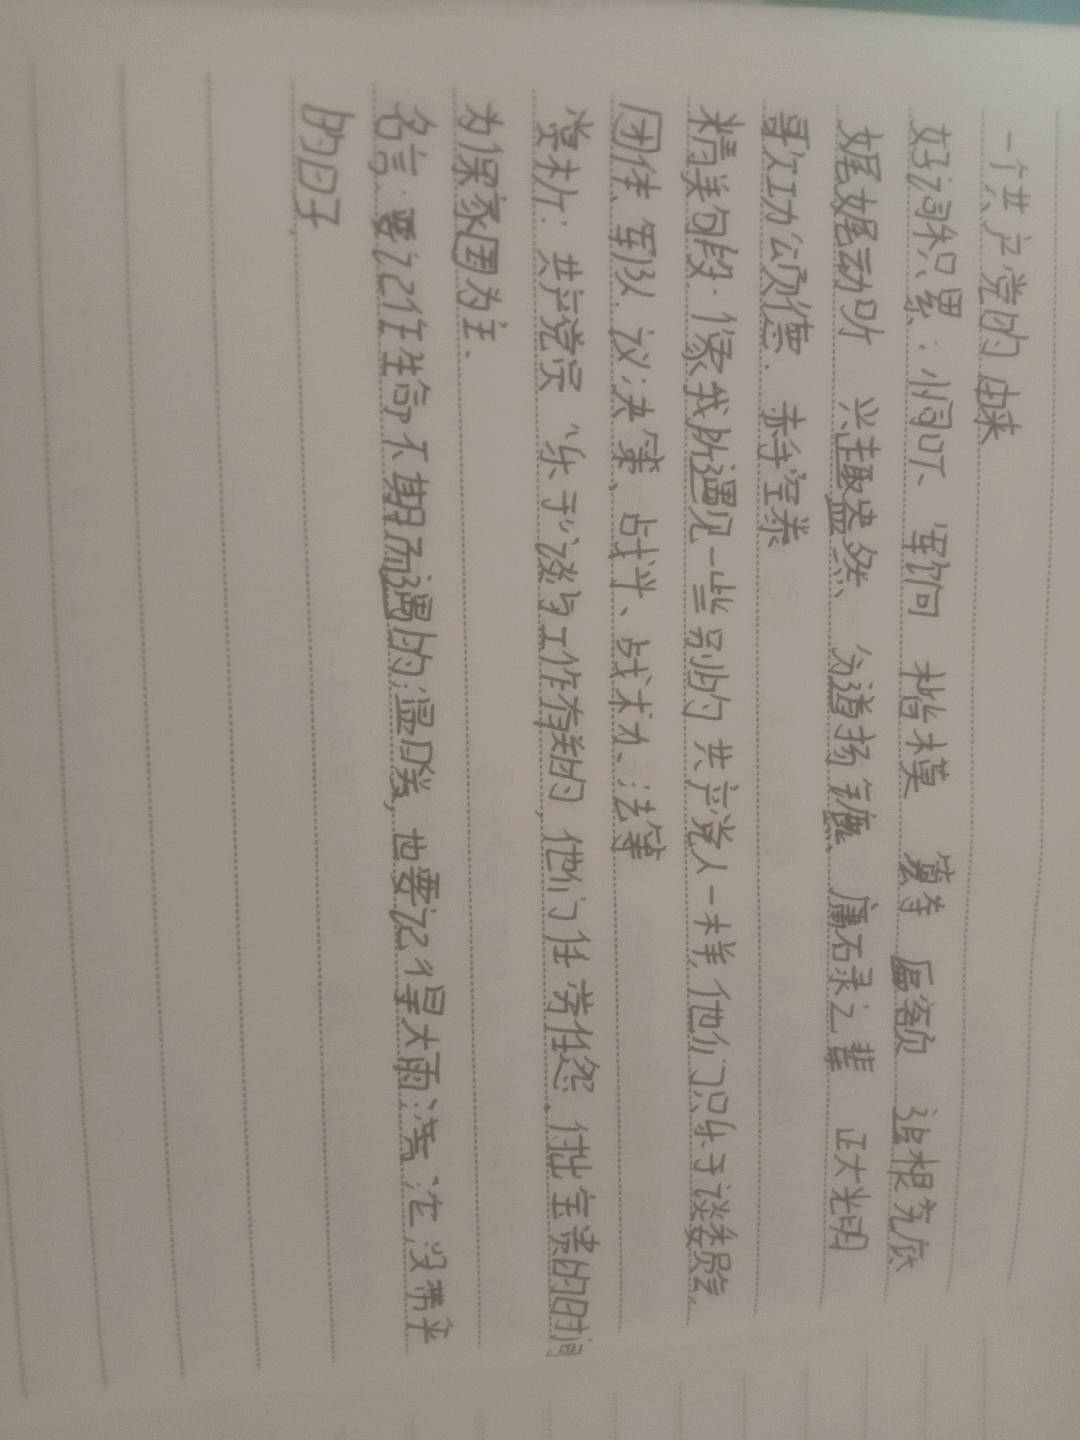 一个共产党的由来
好词积累：恫吓、军饷 楷模 筹 匾额 追根究底
娓娓动听 兴趣盎然、分道扬镳、庸碌之辈 正大光明
歌功颂德. 赤手空拳
精美句段. 像我所遇见一些别的共产党人一样,他们只乐于谈委员会、
团体、军队、议决策、战斗、战术办、法等
赏析：共产党员 乐于谈与工作有关的,他们任劳任怨.付出宝贵的时间
为保家国为主.
名言：要记住生命不期而遇的温暖,也要记得大雨滂沱,没带伞
的日子.